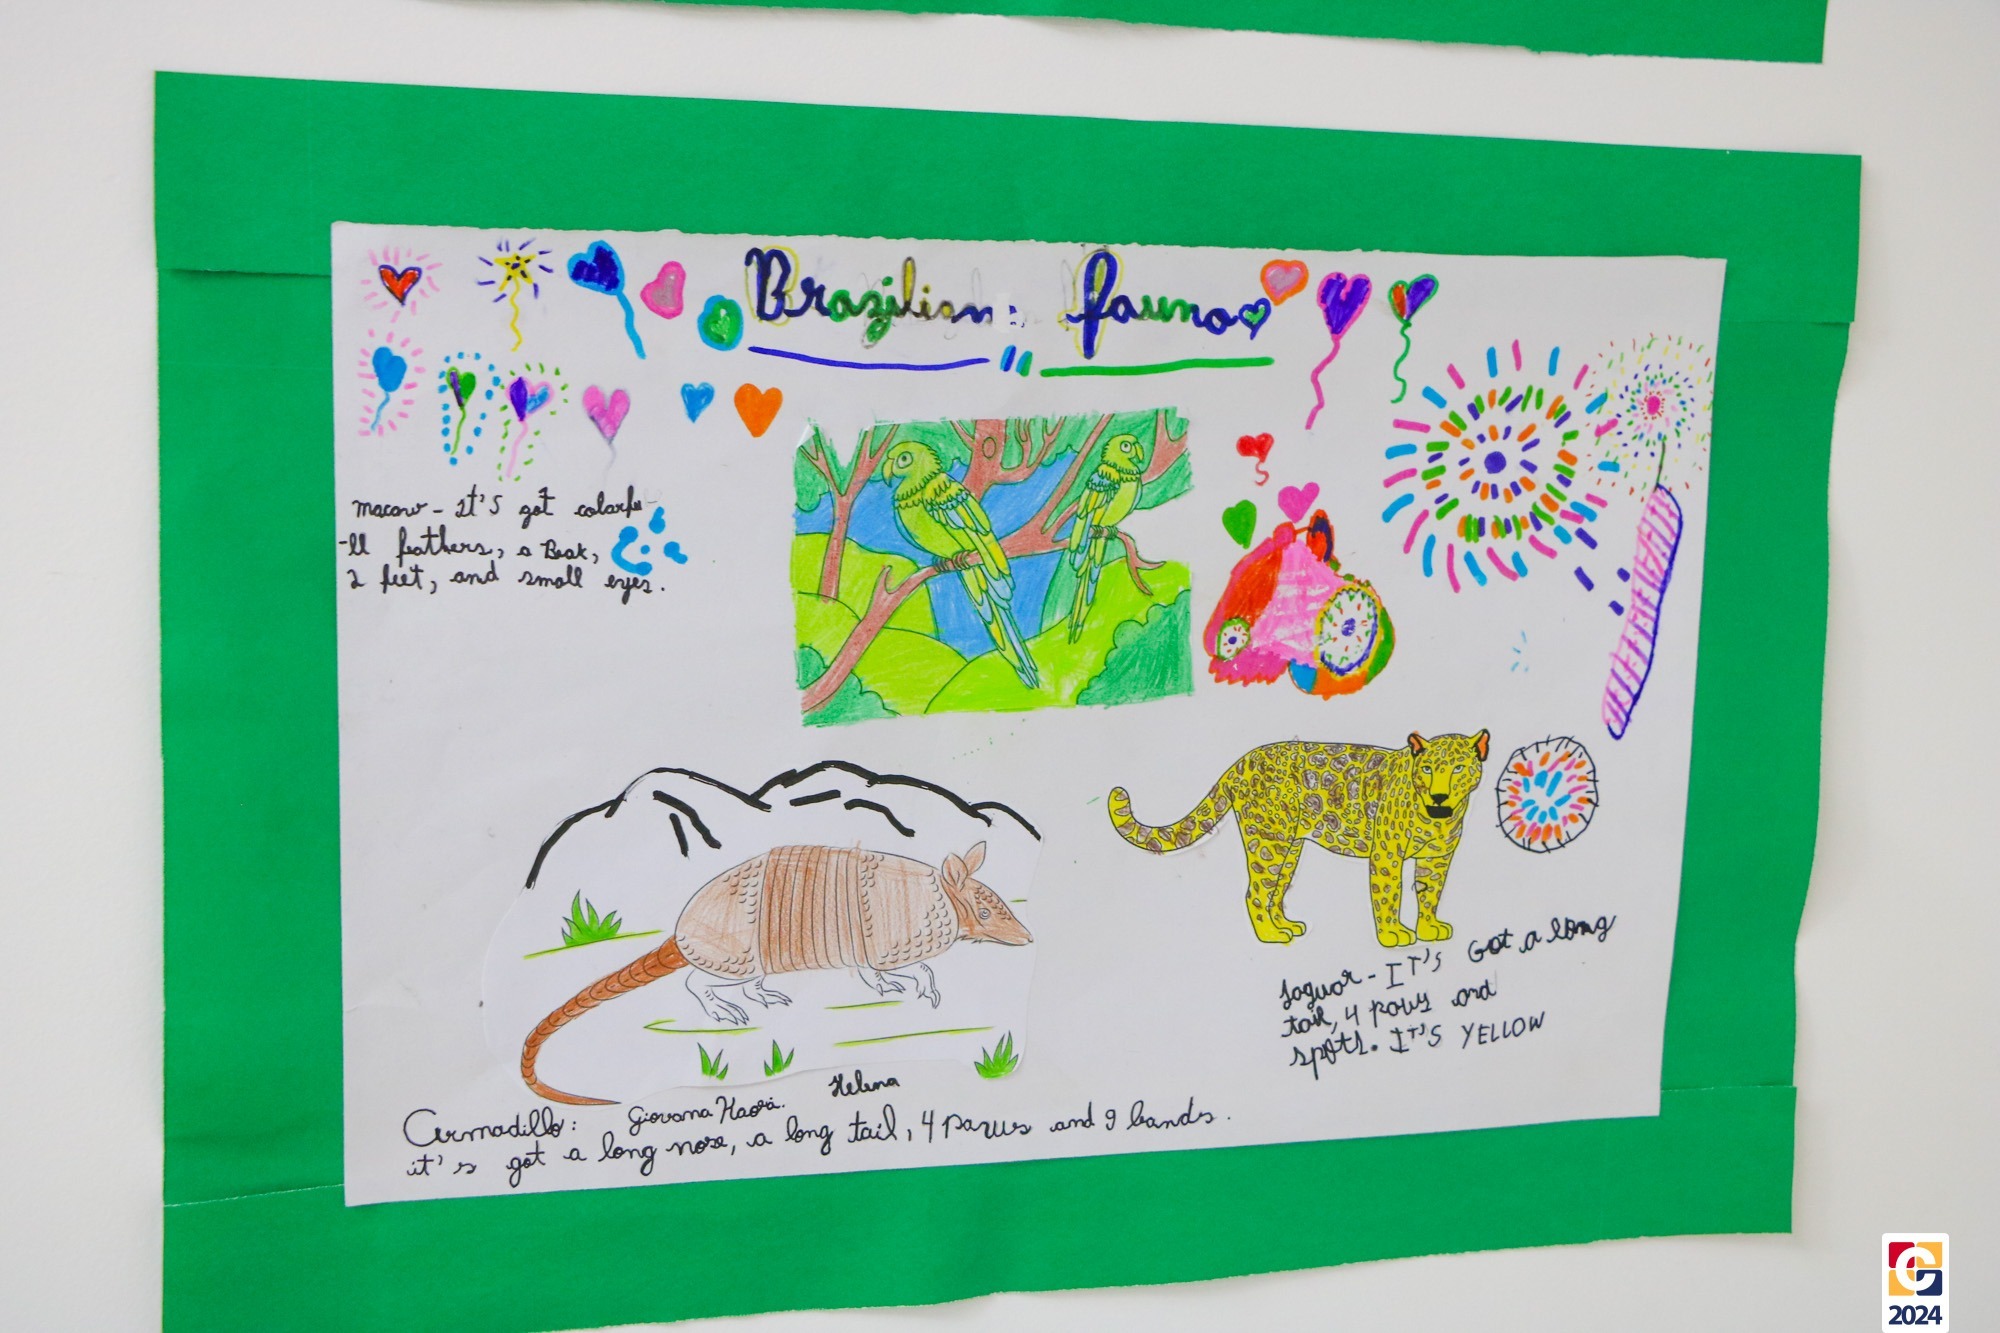 Brazilian: fauna
macaw - It's got colorfu
-ll feathers, a Beak,
2 feet, and small eyes.
Jaguar - IT'S Got a long
tail, 4 paws and
spots. IT'S YELLOW
Helena
Armadillo: Giovana Kaori.
it's got a long nose, a long tail, 4 paws and 9 bands.
G
2024